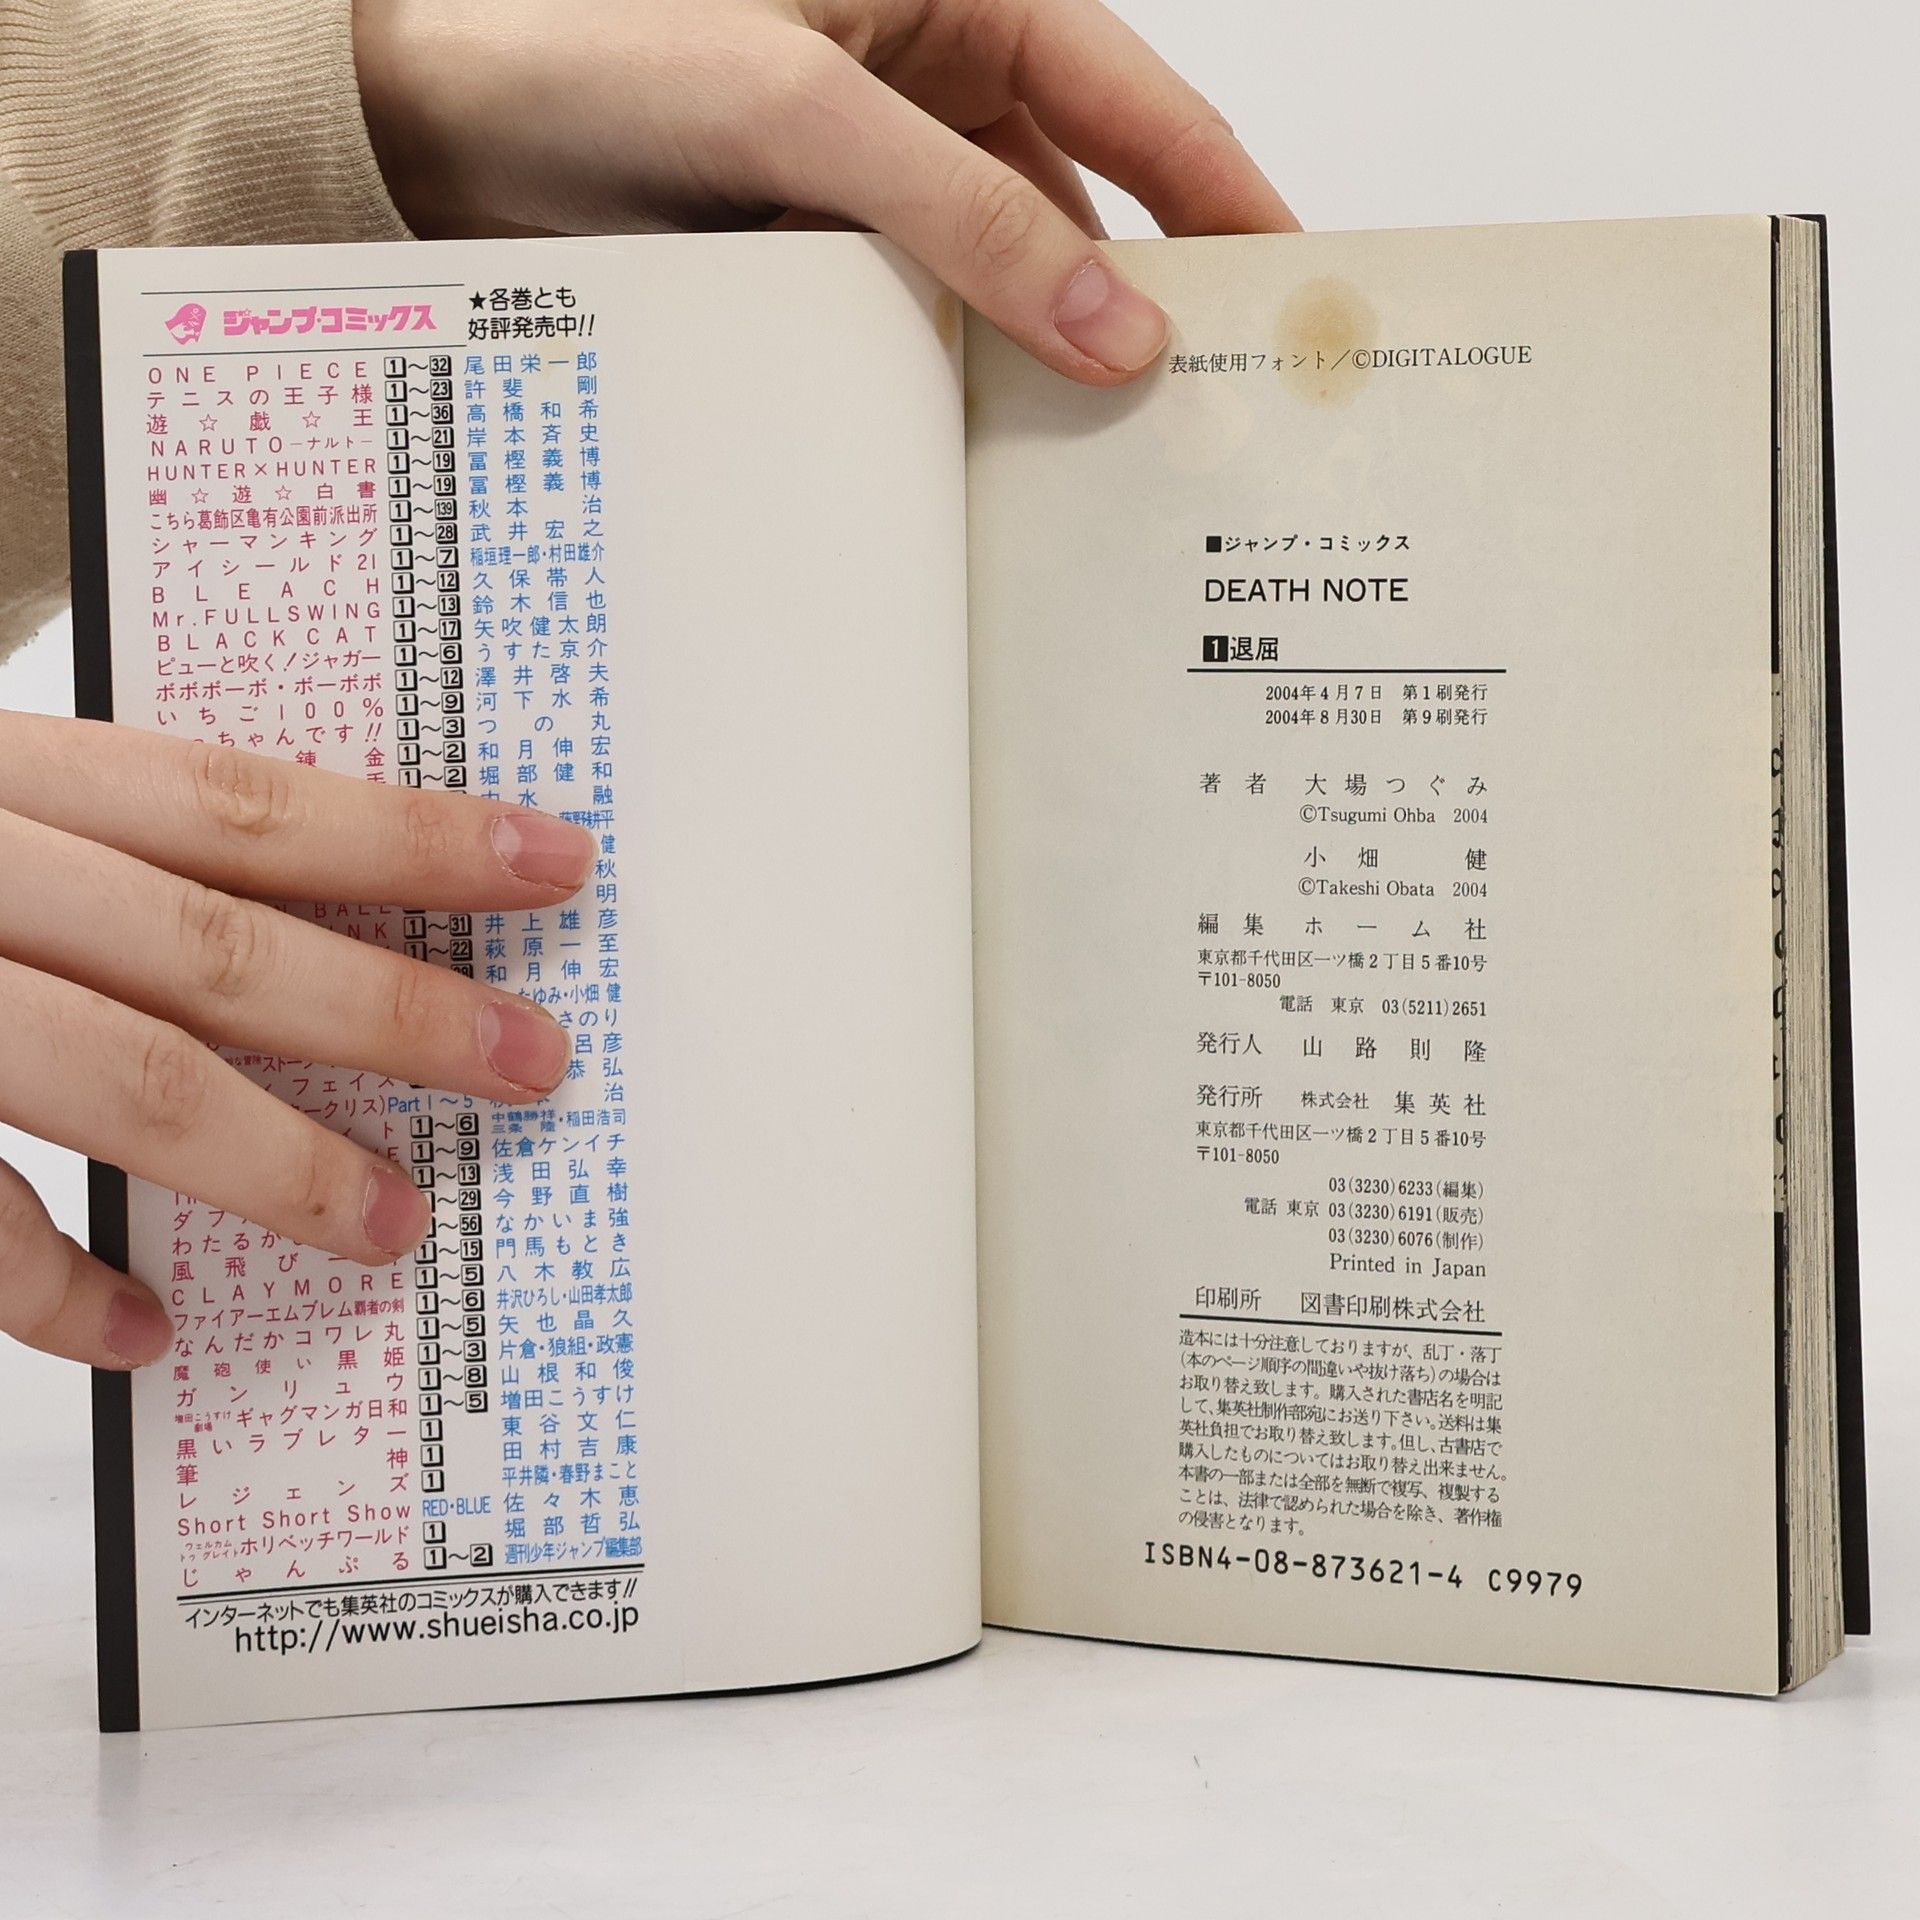 ジャンプ・コミックス
★各巻とも
好評発売中!!
ONE PIECE 1〜32 尾田栄一郎
テニスの王子様 1〜23 許斐剛
遊☆戯☆王 1〜36 高橋和希
NARUTO―ナルト― 1〜21 岸本斉史
HUNTER×HUNTER 1〜19 冨樫義博
幽☆遊☆白書 1〜19 冨樫義博
こちら葛飾区亀有公園前派出所 1〜139 秋本治
シャーマンキング 1〜28 武井宏之
アイシールド21 1〜7 稲垣理一郎・村田雄介
BLEACH 1〜12 久保帯人
Mr.FULLSWING 1〜13 鈴木信也
BLACK CAT 1〜17 矢吹健太朗
ピューと吹く!ジャガー 1〜6 うすた京介
ボボボーボ・ボーボボ 1〜12 澤井啓夫
いちご100% 1〜9 河下水希
っちゃんです!! 1〜3 つの丸
錬金 1〜2 和月伸宏
1〜2 堀部健和
水融
藤野耕平
健
秋
明
BALL
1〜31 井上雄彦
1〜22 萩原一至
和月伸宏
たゆみ・小畑健
さのり
呂彦
恭弘
フェイス
ークリス)Part1〜5 治
イト 1〜6 中鶴勝祥・三条陸・稲田浩司
1〜9 佐倉ケンイチ
1〜13 浅田弘幸
〜29 今野直樹
ダブ 〜56 なかいま強
わたるが 1〜15 門馬もとき
風飛び 1〜5 八木教広
CLAYMORE 1〜6 井沢ひろし・山田孝太郎
ファイアーエムブレム覇者の剣 1〜5 矢也晶久
なんだかコワレ丸 1〜3 片倉・狼組・政憲
魔砲使い黒姫 1〜8 山根和俊
ガンリュウ 1〜5 増田こうすけ
増田こうすけ劇場ギャグマンガ日和 1 東谷文仁
黒いラブレター 1 田村吉康
筆神 1 平井隣・春野まこと
レジェンズ RED・BLUE 佐々木恵
Short Short Show 1 堀部哲弘
ウェルカムトゥグレイトホリベッチワールド 1〜2 週刊少年ジャンプ編集部
じゃんぷる
インターネットでも集英社のコミックスが購入できます!!
http://www.shueisha.co.jp
表紙使用フォント/©DIGITALOGUE
■ジャンプ・コミックス
DEATH NOTE
1退屈
2004年4月7日 第1刷発行
2004年8月30日 第9刷発行
著者 大場つぐみ
©Tsugumi Ohba 2004
小畑健
©Takeshi Obata 2004
編集 ホーム社
東京都千代田区一ツ橋2丁目5番10号
〒101-8050
電話 東京 03(5211)2651
発行人 山路則隆
発行所 株式会社 集英社
東京都千代田区一ツ橋2丁目5番10号
〒101-8050
03(3230)6233(編集)
電話 東京 03(3230)6191(販売)
03(3230)6076(制作)
Printed in Japan
印刷所 図書印刷株式会社
造本には十分注意しておりますが、乱丁・落丁
(本のページ順序の間違いや抜け落ち)の場合は
お取り替え致します。購入された書店名を明記
して、集英社制作部宛にお送り下さい。送料は集
英社負担でお取り替え致します。但し、古書店で
購入したものについてはお取り替え出来ません。
本書の一部または全部を無断で複写、複製する
ことは、法律で認められた場合を除き、著作権
の侵害となります。
ISBN4-08-873621-4 C9979